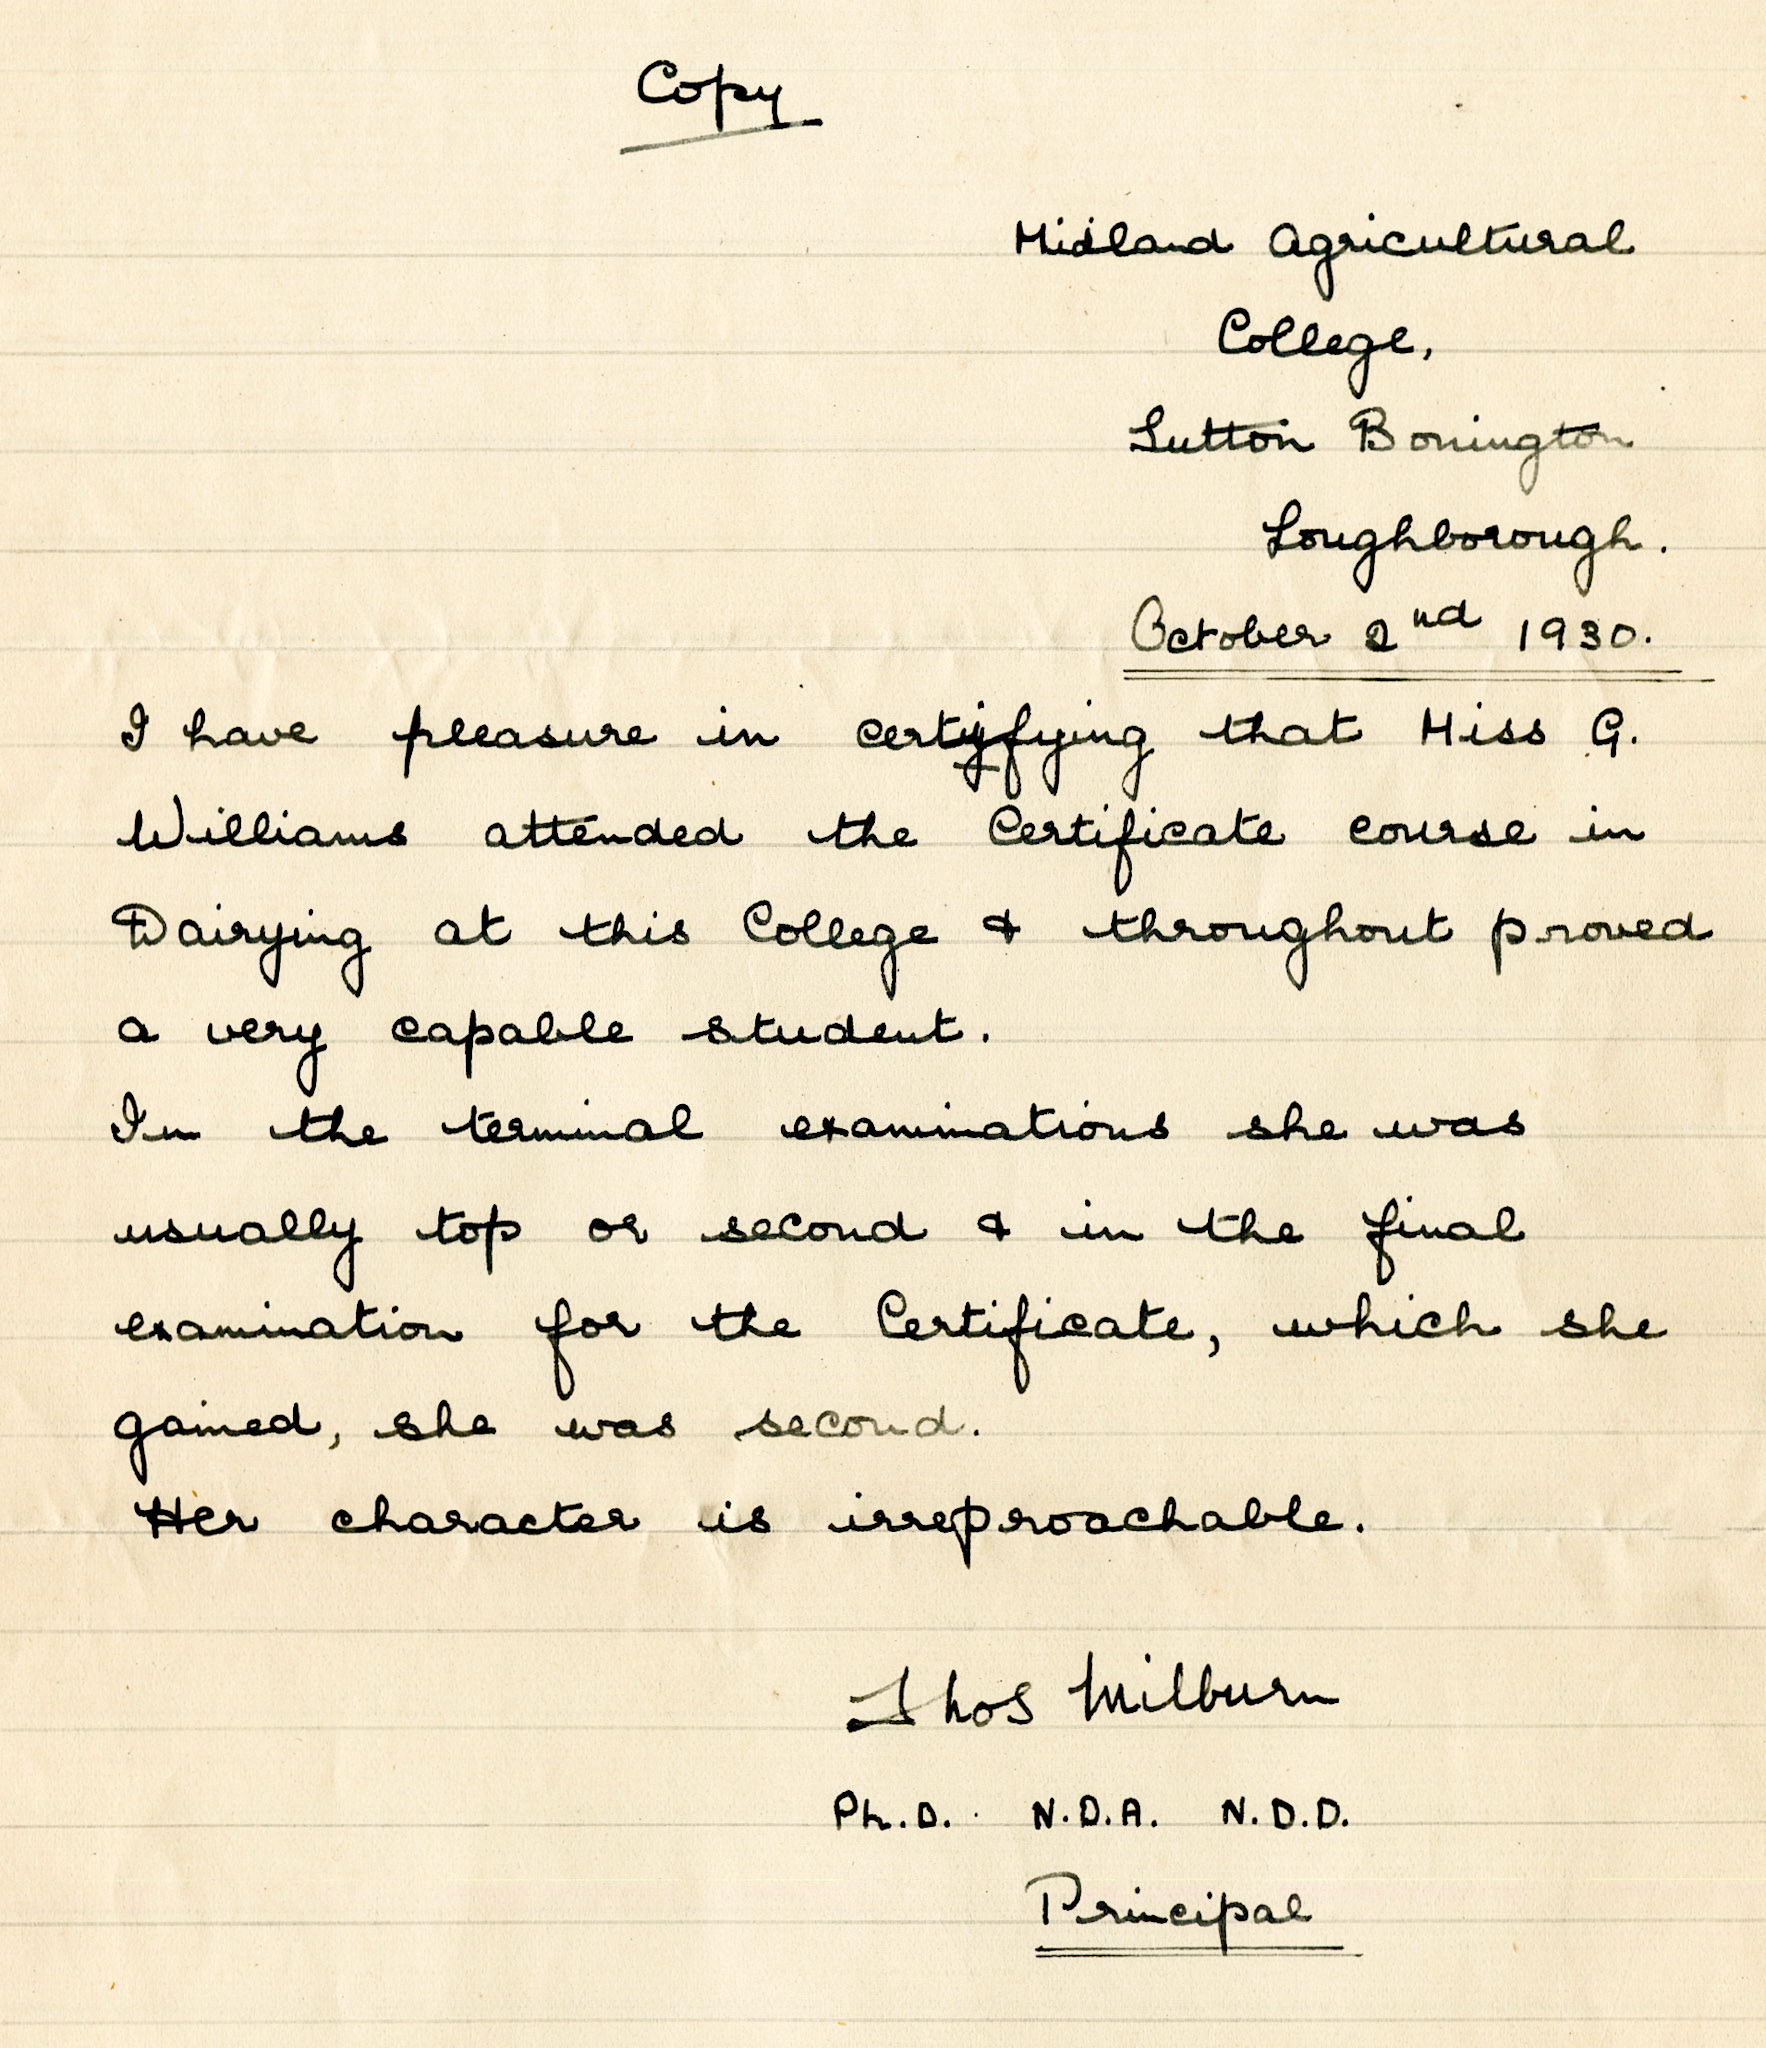 Copy
Midland Agricultural
College,
Sutton Bonington
Loughborough.
October 2nd 1930.
I have pleasure in certifying that Miss G.
Williams attended the Certificate course in
Dairying at this College & throughout proved
a very capable student.
In the terminal examinations she was
usually top or second & in the final
examination for the Certificate, which she
gained, she was second.
Her character is irreproachable.
Thos Milburn
Ph.D. N.D.A. N.D.D.
Principal